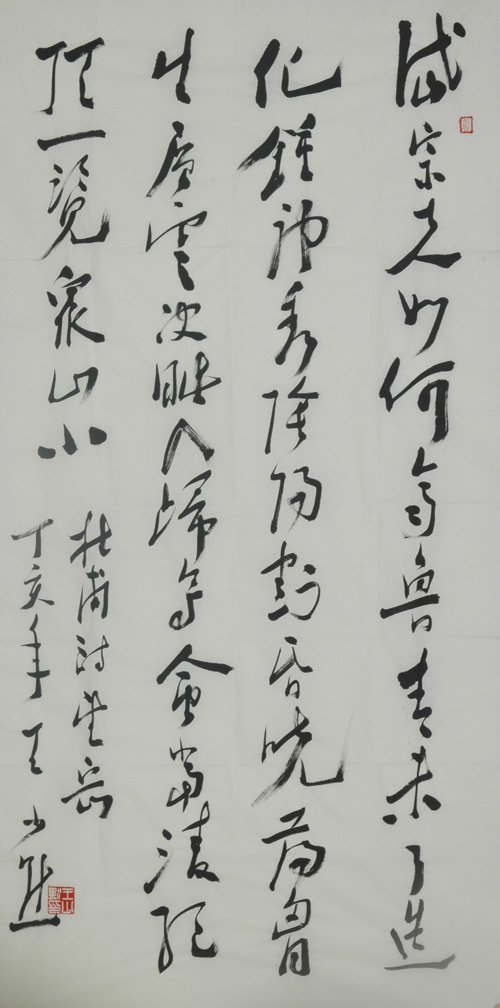 岱宗夫如何齊魯青未了造
化鍾神秀陰陽割昏曉蕩胷
生層雲決眦入歸鳥會當凌絕
頂一覽眾山小
杜甫詩望岳
丁亥年王少